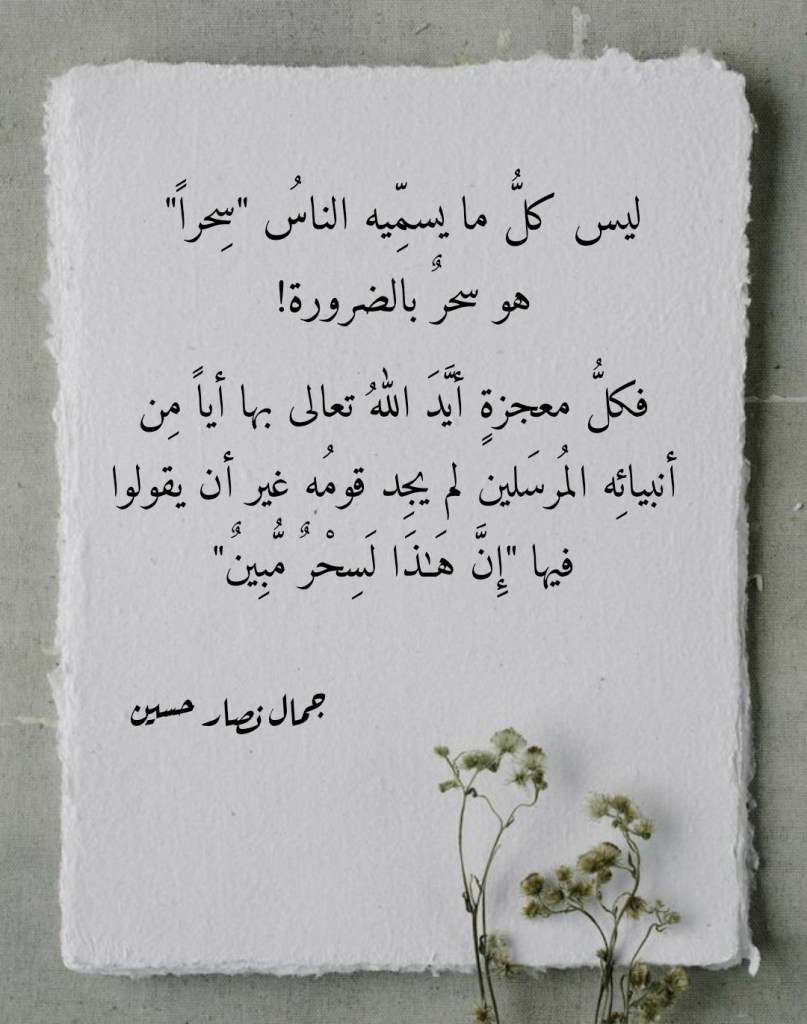 ليس كلُّ ما يسمِّيه الناسُ "سِحراً"
هو سحرٌ بالضرورة!
فكلُّ معجزةٍ أيَّدَ اللهُ تعالى بها أياً مِن
أنبيائِه المُرسَلين لم يجِد قومُه غير أن يقولوا
فيها "إِنَّ هَـٰذَا لَسِحْرٌ مُّبِينٌ"
جمال نصار حسين